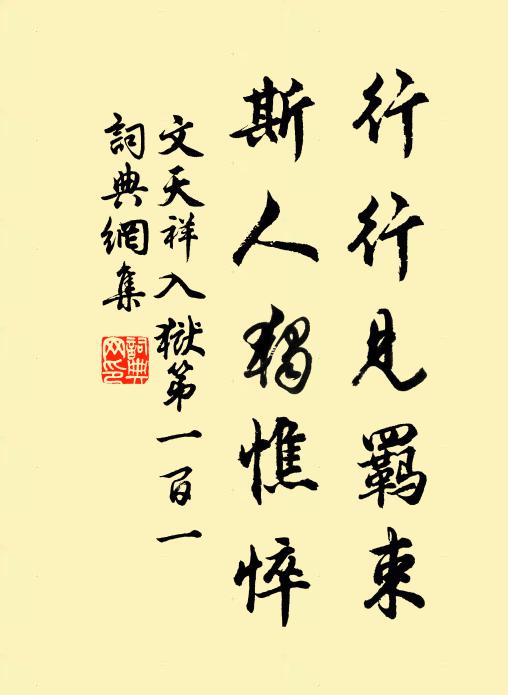 行行見羈束
斯人獨憔悴
文天祥入獄第一百一
詞典網集
詞典網印